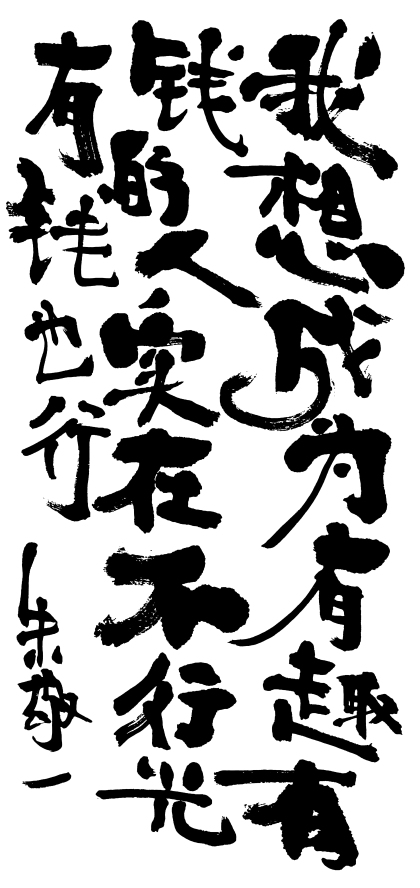 我想成为有趣有
钱的人实在不行光
有钱也行
朱敬一